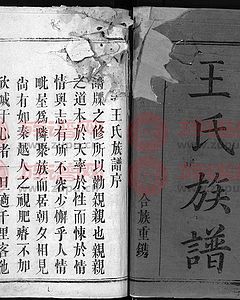 王氏族譜
合族重鐫
王氏族譜序
譜牒之修所以勸親親也親親
之道本於天率於性而悚於情
情與志有所不容少懈乎人情
毗屋爲隣聚族而居朝夕相見
尚有如秦越人之視肥瘠不加
欣戚于心者一旦適千里客他